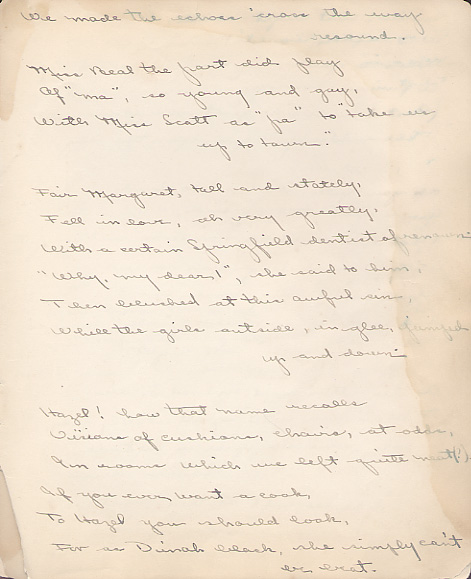 We made the echoes 'cross the way
resound.
Miss Beal the part did play
Of "ma", so young and gay,
With Miss Scott as "pa" to "take us
up to town".
Fair Margaret, tall and stately,
Fell in love, oh very greatly,
With a certain Springfield dentist of renown.
"Why, my dear!", she said to him,
Then blushed at this awful sin,
While the girls outside, in glee, jumped
up and down.
Hazel! how that name recalls
Visions of cushions, chairs, at odds,
In rooms which we left quite neat(!)
If you ever want a cook,
To Hazel you should look,
For as Dinah black, she simply can't
be beat.